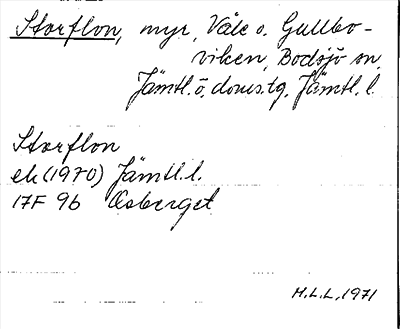 Storflon, myr, Våle o. Gullbo-
viken, Bodsjö sn,
Jämtl. ö. doms.tg. Jämtl. l.
Storflon
ek (1970) Jämtl. l.
17F 9b Åsberget
H.L.L. 1971